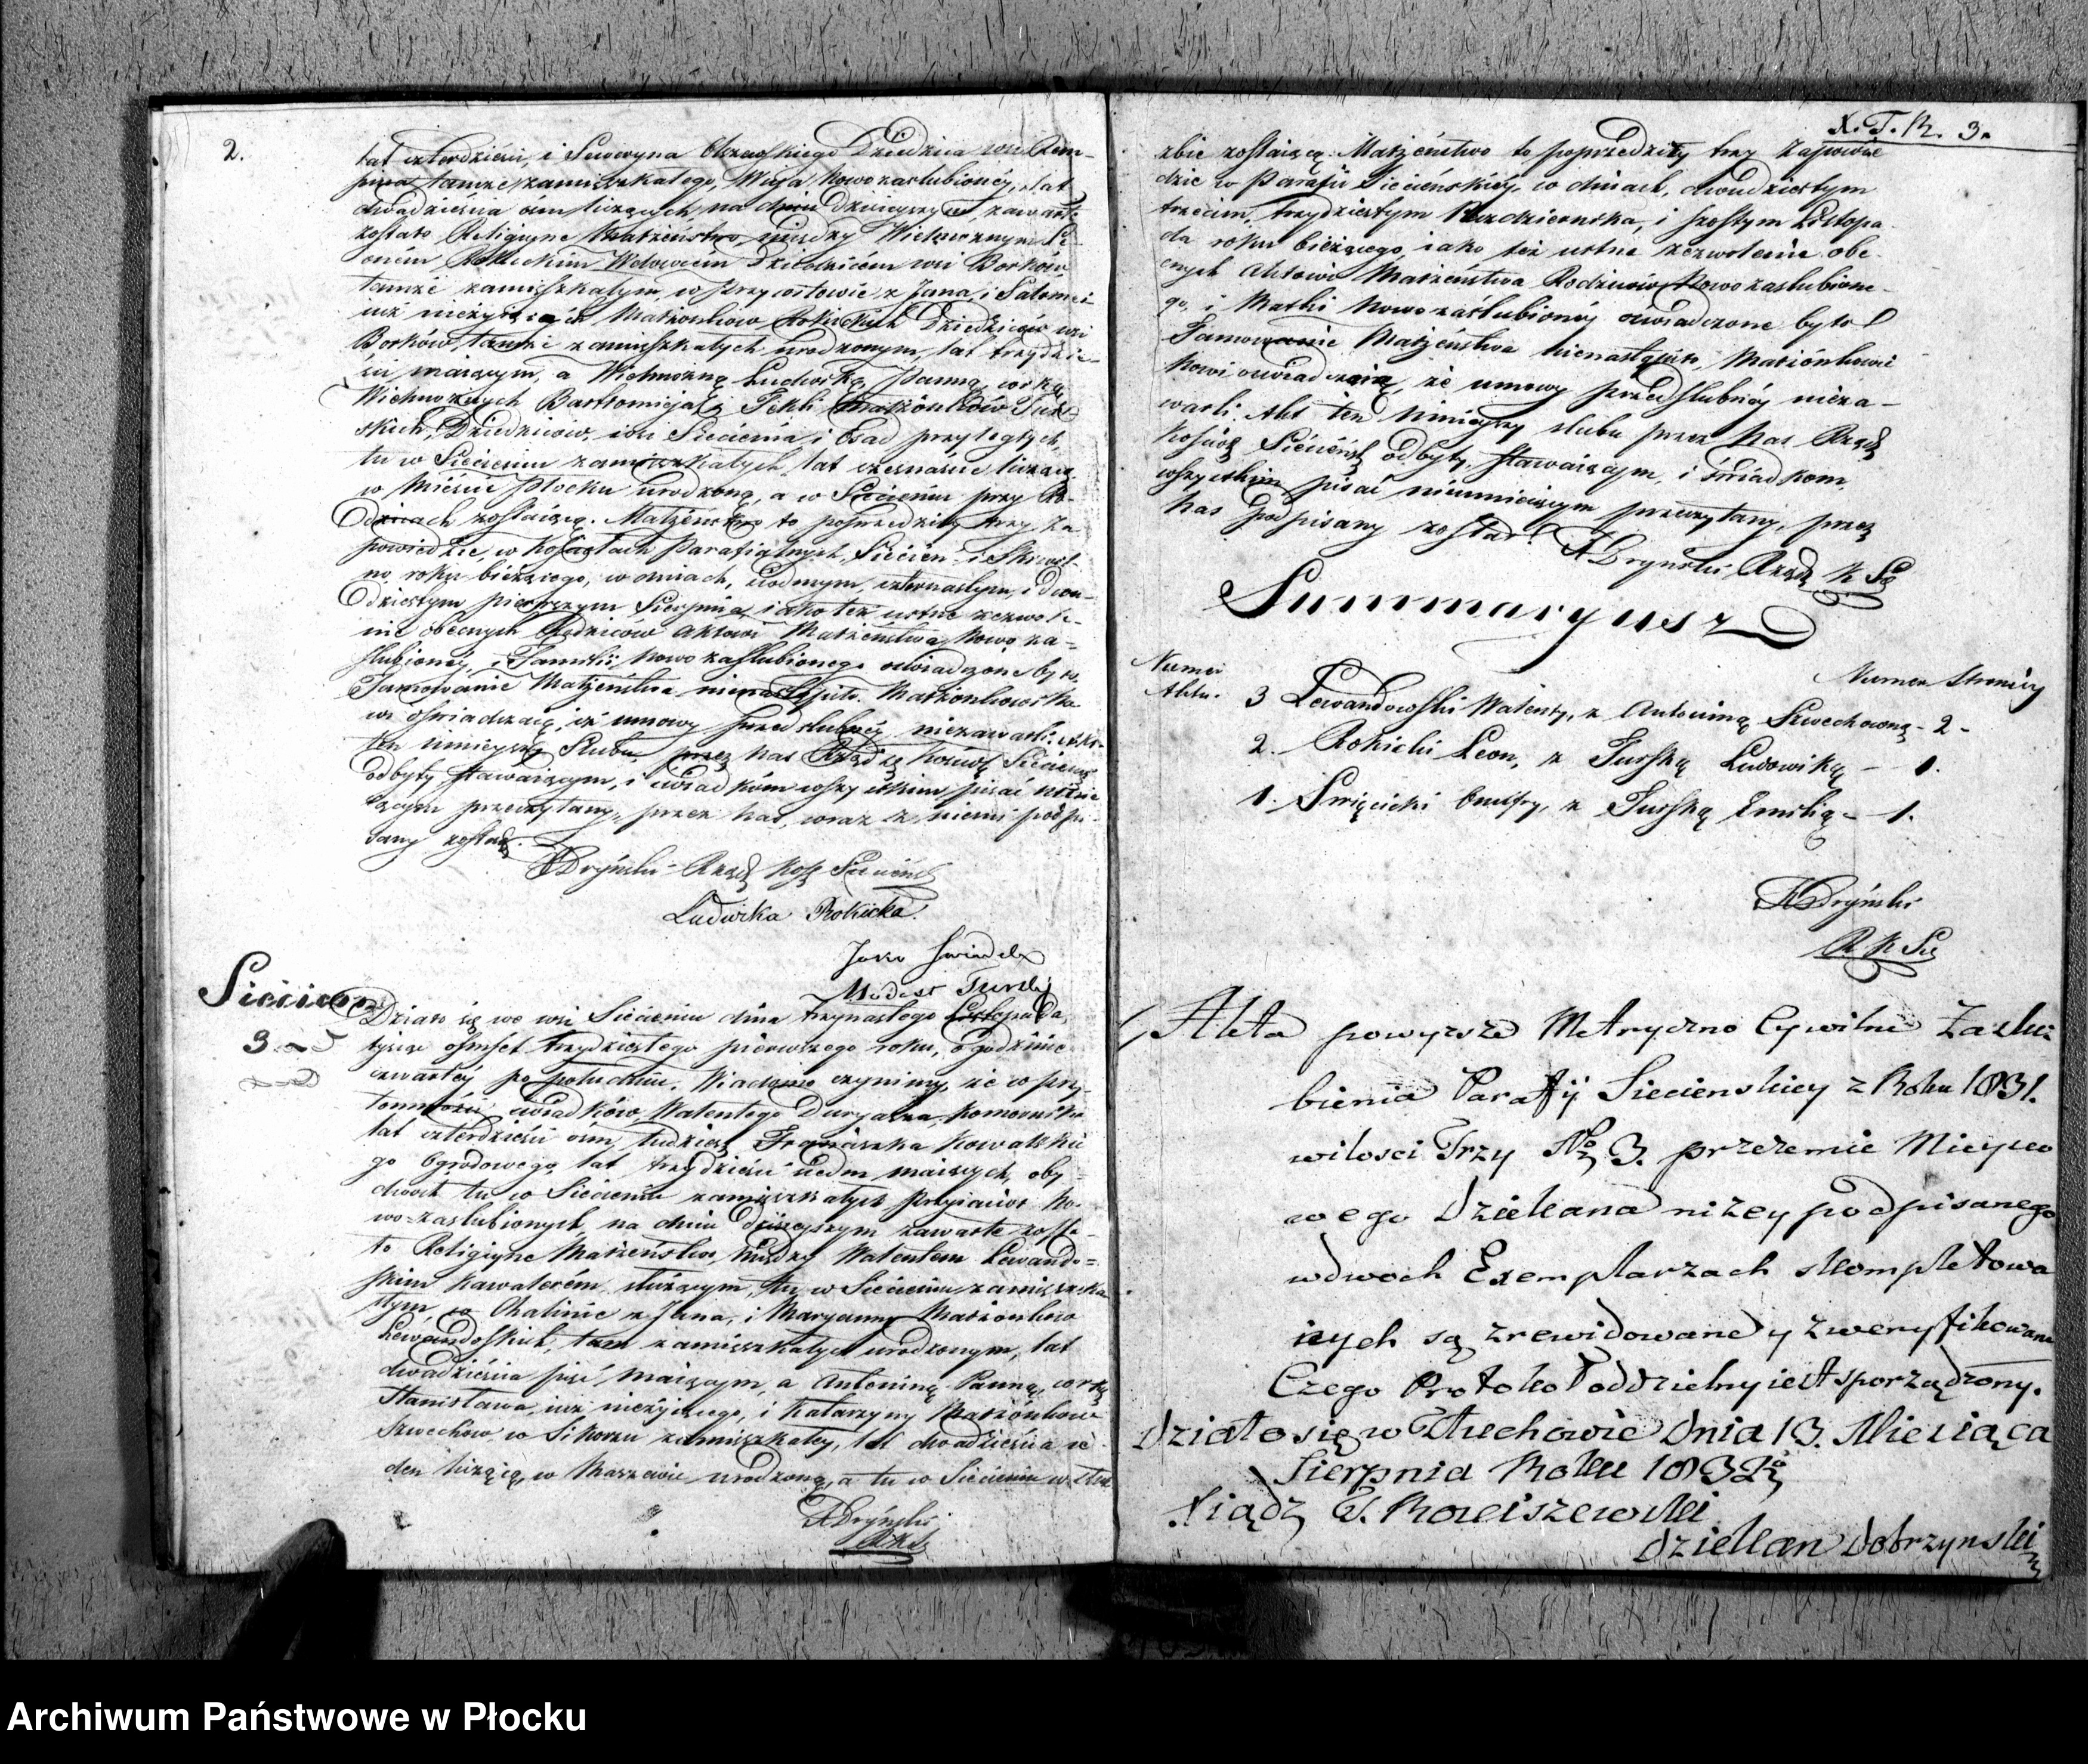 2.
lat czterdzieści, i Seweryna Olszewskiego Dziedzica wsi
tamże zamieszkałego, Wuja Nowozaslubionéy, lat
dwadzieścia ośm liczących, na dniu dzisieyszym zawarte
zostało Religiyne Małżeństwo, między Wielmożnym Le-
onem Rokickim Wdowcem Dziedzicem wsi Borków
tamże zamieszkałym, w Przywitowie z Jana, i Salomei
iuż nieżyiących Małżonków Rokickich Dziedziców wsi
Borków, tamże zamieszkałych urodzonym, lat trzydzie-
ści maiącym, a Wielmożną Ludwiką Panną, córką
Wielmożnych Bartłomieja i Tekli Małżonków Tur-
skich, Dziedziców wsi Siecienia i Osad przyległych,
tu w Siecieniu zamieszkałych, lat szesnaście liczącą
w Mieście Płocku urodzoną, a w Siecieniu przy Ro-
dzicach zostaiącą. Małżeństwo to poprzedziły trzy Za-
powiedzie, w Kościołach Parafialnych, Siecień i
roku bieżącego, w dniach, siódmym, czternastym, i dwu-
dziestym pierwszym Sierpnia, iako też ustne zezwole-
nie obecnych Rodziców Aktowi Małżeństwa, Nowo za-
ślubionéy, i Familii Nowozaslubionego oświadczone było.
Tamowanie Małżeństwa nienastąpiło. Małżonkowie No-
wi oświadczaią, iż umowy przedślubnéy niezawarli. Akt
ten ninieyszy Ślubu, przez Nas Rządzę Kościoł Siecieńs
odbyty, stawaiącym, i świadkom wszystkim pisać
przeczytany, przez Nas, wraz z niemi podpi-
sany został.
XDryński Rządz Kośc Siecieńs
Ludwika Rokicka.
Jako Swiadek
Modest Turski
Siecień
3
Działo się we wsi Siecieniu dnia trzynastego Listopada
tysiąc ośmset trzydziestego pierwszego roku, o godzinie
czwartéy po południu. Wiadomo czynimy, że w przy-
tomności świadków, Walentego Komornika
lat czterdzieści ośm, tudzież Franciszka Kowalskie
go Ogrodowego, lat trzydzieści siedm maiących, oby-
dwóch tu w Siecieniu zamieszkałych Przyiaciół No-
wo-zaslubionych, na dniu dzisieyszym zawarte zosta-
ło Religiyne Małżeństwo, między Walentem Lewando-
skim Kawalerém, służącym, tu w Siecieniu zamieszka
łym w Chalinie z Jana, i Maryanny Małżonków
Lewandoskich, tam zamieszkałych urodzonym, lat
dwadzieścia pięć maiącym, a Antoniną Panną, córką
Stanisława iuż nieżyiącego, i Katarzyny Małżonków
Szwechów w Sikorzu zamieszkałéy, lat dwadzieścia ie-
den liczącą, w Maszewie urodzoną, a tu w Siecieniu w Słu
XDryński
RKS
X. T. R. 3.
żbie zostaiącą. Małżeństwo to poprzedziły trzy Zapowie
dzie w Parafii Siecieńskiéy, w dniach, dwudziestym
trzecim, trzydziestym Października, i szóstym Listopa
da roku bieżącego, iako też ustne zezwolenie obe-
cnych Aktowi Małżeństwa Rodziców Nowozaslubione-
go, i Matki Nowozaślubionéy oświadczone było.
Tamowanie Małżeństwa nienastąpiło, Małżonkowie
Nowi oświadczaią, że umowy przedślubnéy nieza-
warli. Akt ten ninieyszy slubu przez Nas Rządz
Kościoł Siecieńsk odbyty, stawaiącym, i świadkom
wszystkim pisać nieumieiącym przeczytany, przez
Nas podpisany został.
XDryński Rządz K Sie
Summaryusz
Numer
Aktu.
Numer Stronicy
3 Lewandowski Walenty, z Antoniną Szwechowną - 2 -
2. Rokicki Leon, z Turską Ludowiką - 1.
1. Swięcicki Onufry, z Turską Emilią - 1.
XDryński
R K Sie
Akta powyższe Metryczno Cywilne Zaslu-
bienia Parafij Siecienskiey z Roku 1831.
wilosci Trzy No 3. przezemie Mieysco
wego Dziekana niżey podpisanego
wdwoch Exemplarzach skompletowa
nych są zrewidowane y zweryfikowane
Czego Protokoł oddzielny iest sporządzony.
Działo się w Tłuchowie Dnia 13. Miesiąca
Sierpnia Roku 1832.
Xiądz T. Rociszewski
Dziekan Dobrzynski
Archiwum Państwowe w Płocku